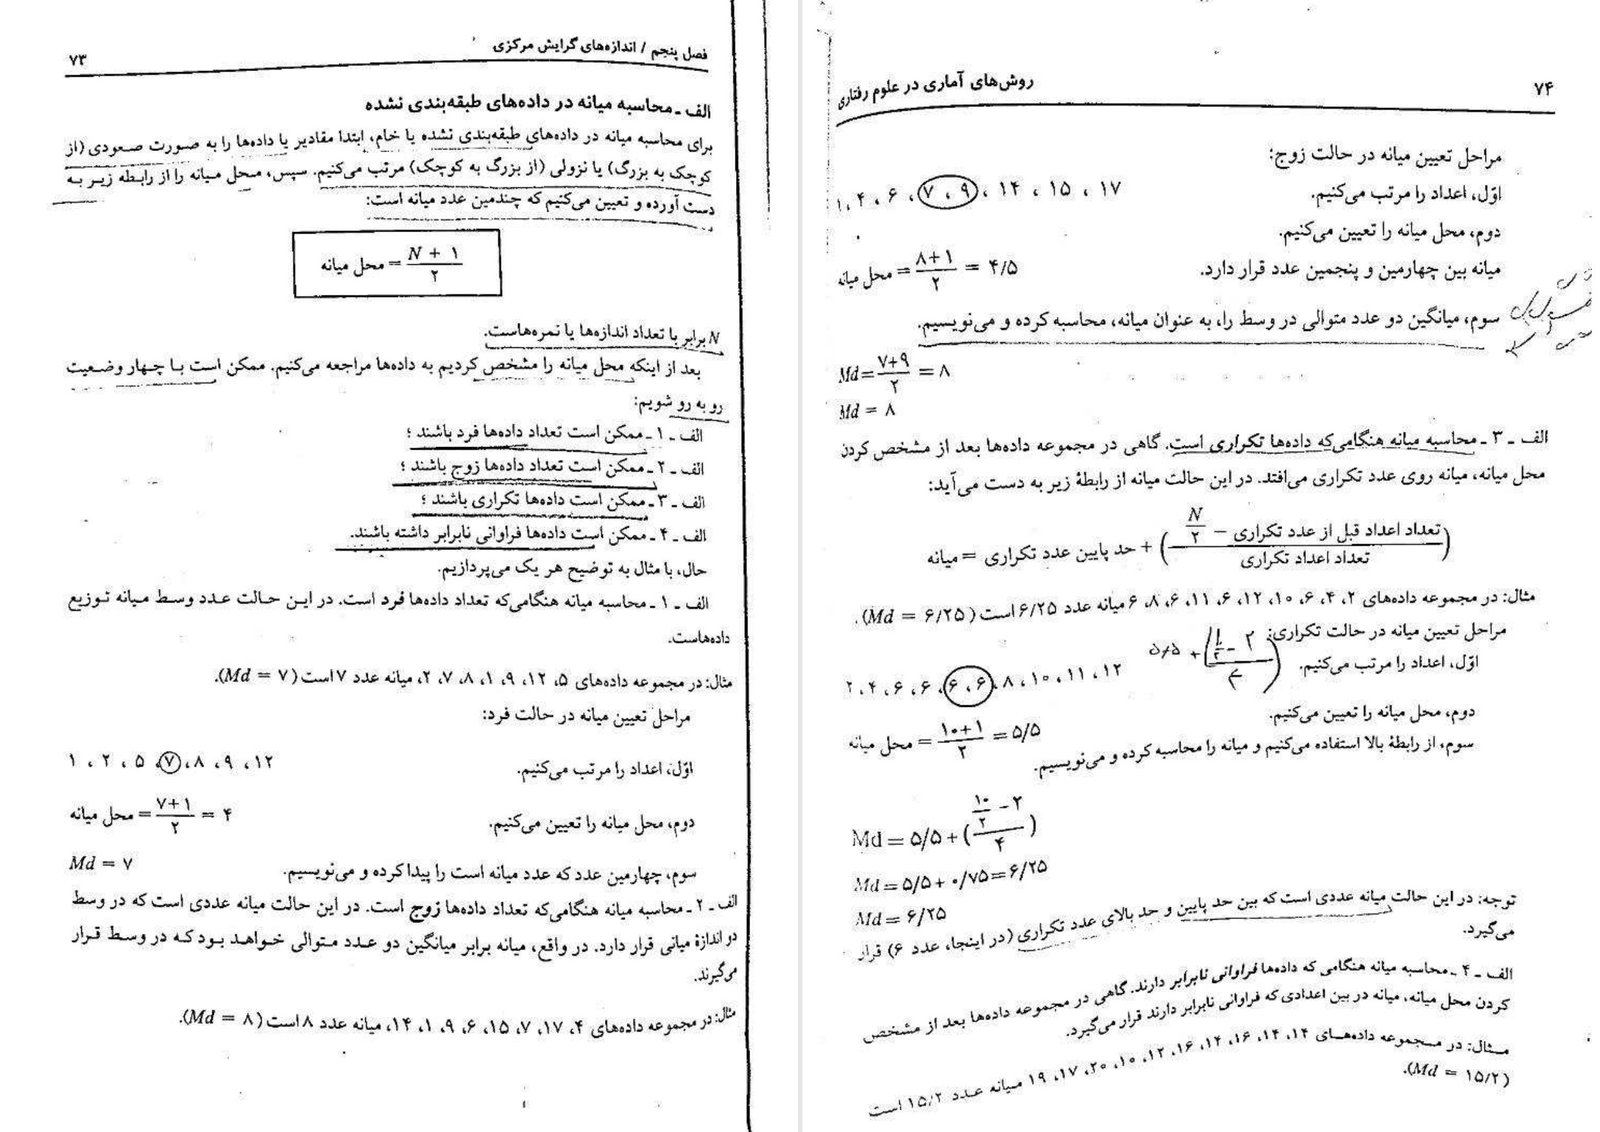 فصل پنجم / اندازه‌های گرایش مرکزی ۷۳
الف ـ محاسبه میانه در داده‌های طبقه‌بندی نشده
برای محاسبه میانه در داده‌های طبقه‌بندی نشده یا خام، ابتدا مقادیر یا داده‌ها را به صورت صعودی (از
کوچک به بزرگ) یا نزولی (از بزرگ به کوچک) مرتب می‌کنیم. سپس، محل میانه را از رابطه زیر به
دست آورده و تعیین می‌کنیم که چندمین عدد میانه است:
محل میانه = (N + ۱) / ۲
N برابر با تعداد اندازه‌ها یا نمره‌هاست.
بعد از اینکه محل میانه را مشخص کردیم به داده‌ها مراجعه می‌کنیم. ممکن است با چهار وضعیت
رو به رو شویم:
الف ـ ۱ ـ ممکن است تعداد داده‌ها فرد باشند ؛
الف ـ ۲ ـ ممکن است تعداد داده‌ها زوج باشند ؛
الف ـ ۳ ـ ممکن است داده‌ها تکراری باشند ؛
الف ـ ۴ ـ ممکن است داده‌ها فراوانی نابرابر داشته باشند.
حال، با مثال به توضیح هر یک می‌پردازیم.
الف ـ ۱ ـ محاسبه میانه هنگامی‌که تعداد داده‌ها فرد است. در این حالت عدد وسط میانه توزیع
داده‌هاست.
مثال: در مجموعه داده‌های ۵، ۱۲، ۹، ۱، ۸، ۷، ۲، میانه عدد ۷ است (Md = ۷).
مراحل تعیین میانه در حالت فرد:
اوّل، اعداد را مرتب می‌کنیم. ۱ ، ۲ ، ۵ ، ۷ ، ۸ ، ۹ ، ۱۲
دوم، محل میانه را تعیین می‌کنیم. محل میانه = (۷+۱) / ۲ = ۴
سوم، چهارمین عدد که عدد میانه است را پیدا کرده و می‌نویسیم. Md = ۷
الف ـ ۲ ـ محاسبه میانه هنگامی‌که تعداد داده‌ها زوج است. در این حالت میانه عددی است که در وسط
دو اندازهٔ میانی قرار دارد. در واقع، میانه برابر میانگین دو عدد متوالی خواهد بود که در وسط قرار
می‌گیرند.
مثال: در مجموعه داده‌های ۴، ۱۷، ۷، ۱۵، ۶، ۹، ۱، ۱۴، میانه عدد ۸ است (Md = ۸).
روش‌های آماری در علوم رفتاری ۷۴
مراحل تعیین میانه در حالت زوج:
اوّل، اعداد را مرتب می‌کنیم. ۱، ۴ ، ۶ ، ۷ ، ۹ ، ۱۴ ، ۱۵ ، ۱۷
دوم، محل میانه را تعیین می‌کنیم.
میانه بین چهارمین و پنجمین عدد قرار دارد. محل میانه = (۸+۱) / ۲ = ۴/۵
سوم، میانگین دو عدد متوالی در وسط را، به عنوان میانه، محاسبه کرده و می‌نویسیم.
Md = (۷+۹) / ۲ = ۸
Md = ۸
الف ـ ۳ ـ محاسبه میانه هنگامی‌که داده‌ها تکراری است. گاهی در مجموعه داده‌ها بعد از مشخص کردن
محل میانه، میانه روی عدد تکراری می‌افتد. در این حالت میانه از رابطهٔ زیر به دست می‌آید:
میانه = حد پایین عدد تکراری + ((N/۲ − تعداد اعداد قبل از عدد تکراری) / تعداد اعداد تکراری)
مثال: در مجموعه داده‌های ۲، ۴، ۶، ۱۰، ۱۲، ۶، ۱۱، ۶، ۸، ۶ میانه عدد ۶/۲۵ است (Md = ۶/۲۵).
مراحل تعیین میانه در حالت تکراری:
اوّل، اعداد را مرتب می‌کنیم. ۲ ، ۴ ، ۶ ، ۶ ، ۶ ، ۶ ، ۸ ، ۱۰ ، ۱۱ ، ۱۲
دوم، محل میانه را تعیین می‌کنیم.
محل میانه = (۱۰+۱) / ۲ = ۵/۵
سوم، از رابطهٔ بالا استفاده می‌کنیم و میانه را محاسبه کرده و می‌نویسیم.
Md = ۵/۵ + ((۱۰/۲ − ۲) / ۴)
Md = ۵/۵ + ۰/۷۵ = ۶/۲۵
Md = ۶/۲۵
توجه: در این حالت میانه عددی است که بین حد پایین و حد بالای عدد تکراری (در اینجا، عدد ۶) قرار
می‌گیرد.
الف ـ ۴ ـ محاسبه میانه هنگامی که داده‌ها فراوانی نابرابر دارند. گاهی در مجموعه داده‌ها بعد از مشخص
کردن محل میانه، میانه در بین اعدادی که فراوانی نابرابر دارند قرار می‌گیرد.
مثال: در مجموعه داده‌های ۱۴، ۱۴، ۱۶، ۱۴، ۱۶، ۱۲، ۱۰، ۲۰، ۱۷، ۱۹ میانه عدد ۱۵/۲ است
(Md = ۱۵/۲).